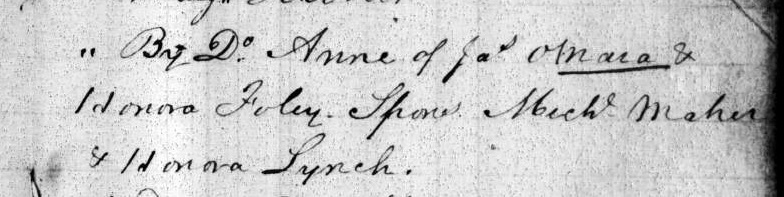 " By Do. Anne of Jas OMara &
Honora Foley. Spons. Michl Maher
& Honora Lynch.